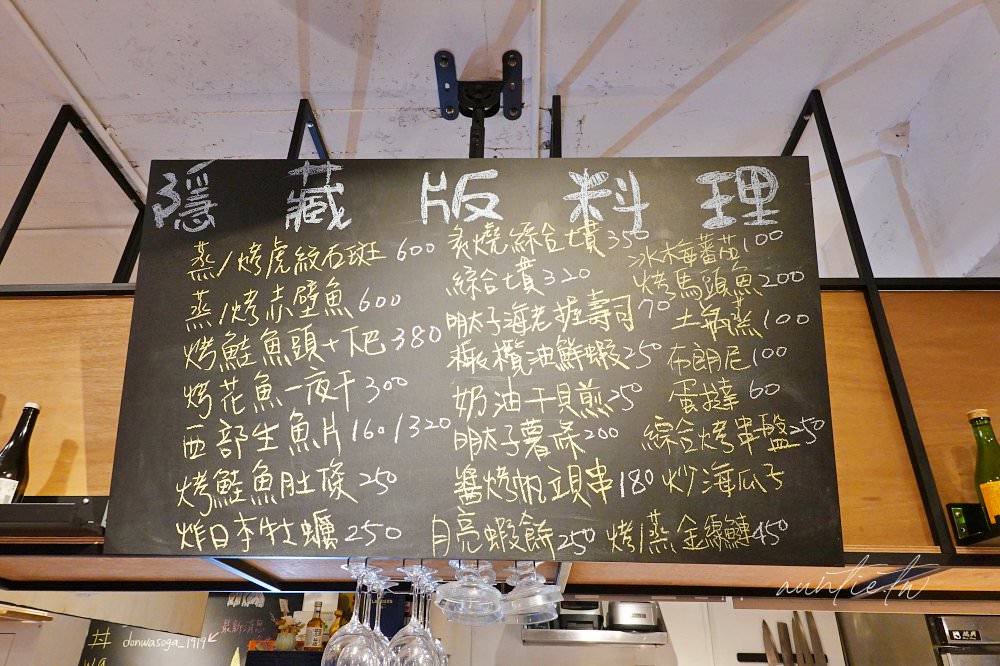 隱藏版料理
蒸/烤虎紋石斑 600
蒸/烤赤壁魚 600
烤鮭魚頭+下巴 380
烤花魚一夜干 300
西部生魚片 160/320
烤鮭魚肚條 250
炸日本牡蠣 250
炙燒綜合壽 350
綜合壽 320
明太子海老握壽司 70
橄欖油鮮蝦 250
奶油干貝煎 250
明太子薯條 200
醬烤帆立貝串 180
月亮蝦餅 250
冰梅蕃茄 100
烤馬頭魚 200
土瓶蒸 100
布朗尼 100
蛋撻 60
綜合烤串盤 250
炒海瓜子
烤/蒸金線鰱 450
auntie.tw
# donwasoga_1919
最新消息
wa